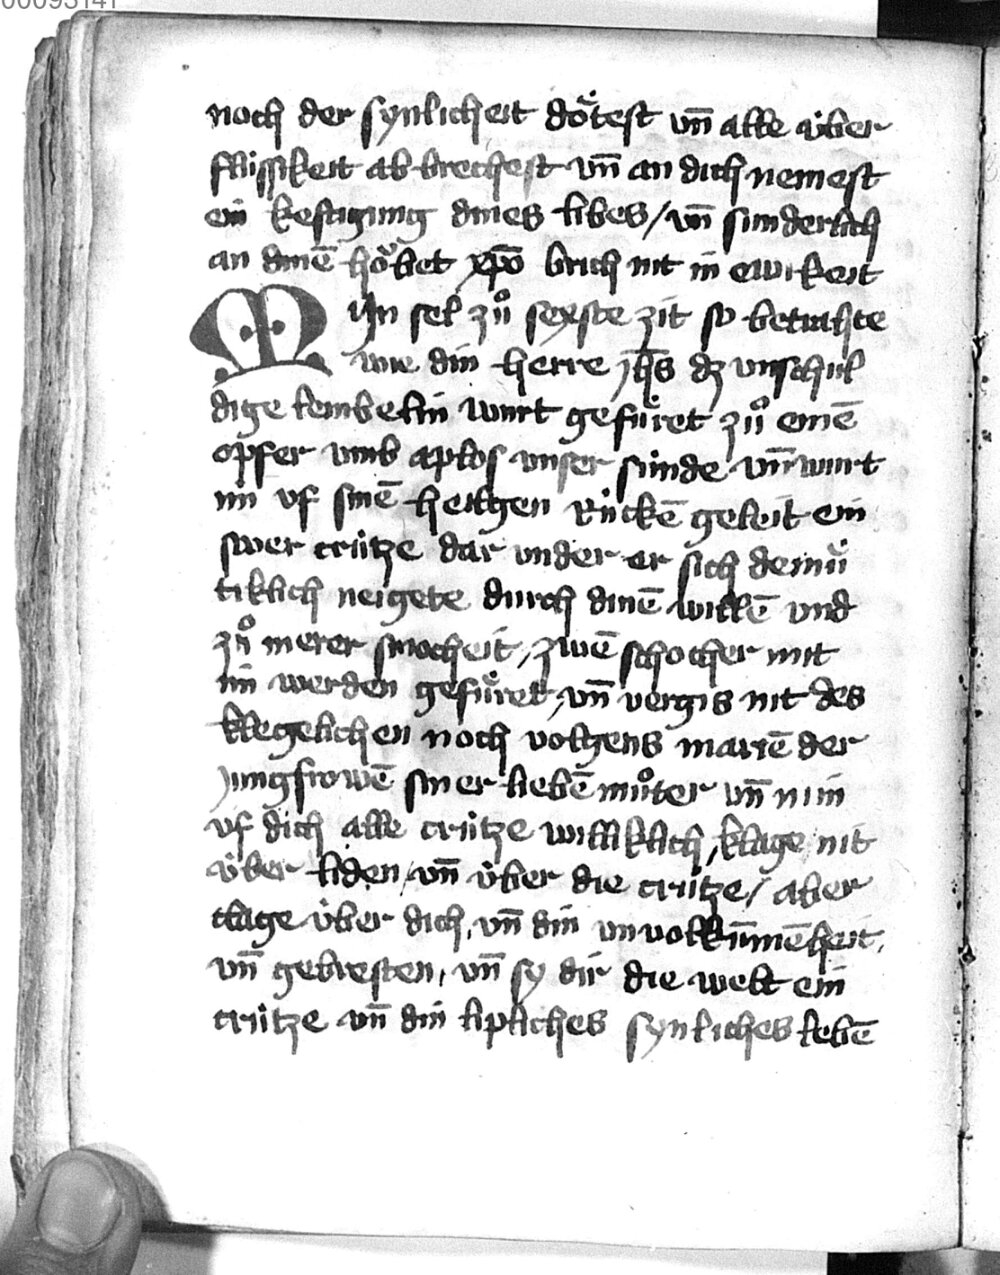 00095141
noch der synlicheit do᷅test vn̄ alle u̇ber
flu̇ssikeit ab brechest vn̄ an dich nemest
ein kestigung dines libes / vn̄ sunderlich
an dinē ho᷅bet xp̄o brich nit in ewikeit
Min sel zuͦ sexste zit so betrahte
wie din herre jh̄s dz vnschul
dige lembelin wirt gefu̇ret zuͦ einē
opfer vmb aplos vnser su̇nde vn̄ wirt
im vf sinē heilgen Ru̇ckē geleit ein
swer cru̇tze dar vnder er sich demu̇
tiklich neigete durch dinē willē vnd
zuͦ merer smocheit, zwē schocher mit
im werden gefu̇ret, vn̄ vergis nit des
klegelichen noch volgens mariē der
jungfrowē siner liebē muͦter vn̄ nim
vf dich alle cru̇tze williklich, klage nit
u̇ber liden, vn̄ u̇ber die cru̇tze / aber
clage u̇ber dich, vn̄ din vnvolku̅mēheit,
vn̄ gebresten, vn̄ sy dir die welt ein
cru̇tze vn̄ din lipliches synliches lebē